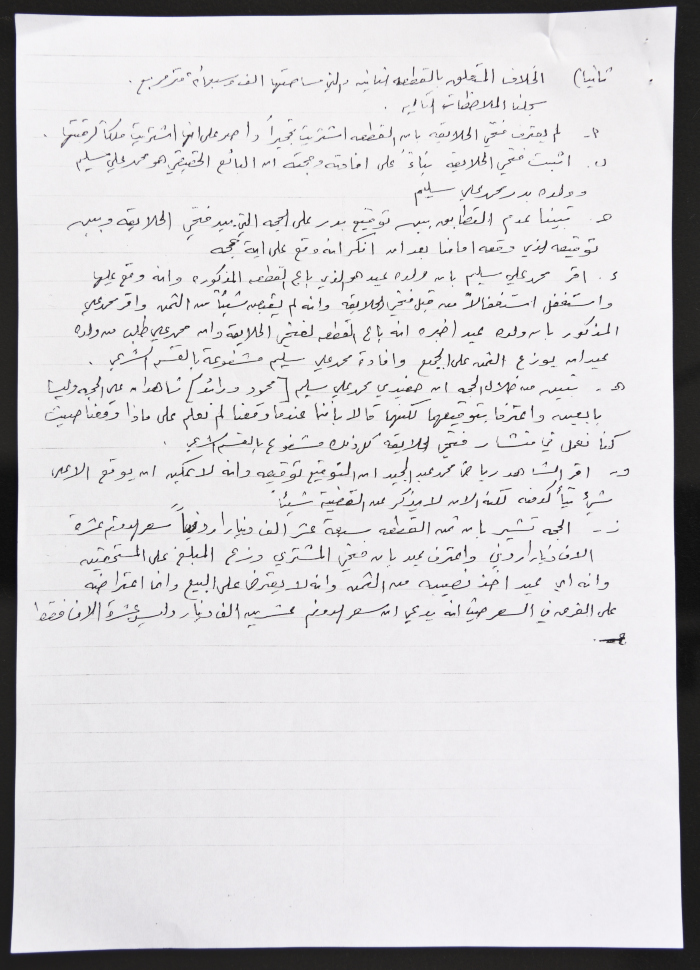 ثانيا) الخلاف المتعلق بالقطعه الثانيه والتي مساحتها الف وسبعمائة متر مربع .
سجلنا الملاحظات التاليه .
لم يعترف فتحي الحلايقه بان القطعه اشتريت تحجيراً واصر على انها اشتريت ملكاً لرقبتها .
ب. اثبت فتحي الحلايقه بناءً على افادته وحجته ان البائع الحقيقي هو محمد علي سليم
وولده بدر محمد علي سليم
جـ. تبينا عدم التطابق بين توقيع بدر على الحجه التي بيد فتحي الحلايقه وبين
توقيعه الذي وقعه امامنا بعد ان انكر انه وقع على اية حجه
د. اقر محمد علي سليم بان ولده عيد هو الذي باع القطعه المذكوره وانه وقع عليها
واستغفل استغفالاً من قبل فتحي الحلايقه وانه لم يقبض شيئاً من الثمن واقر محمد علي
المذكور بان ولده عيد اخبره انه باع القطعه لفتحي الحلايقة وان محمد علي طلب من ولده
عيد ان يوزع الثمن على الجميع وافادة محمد علي سليم مشفوعة بالقسم الشرعي .
هـ. تبين من خلال الحجه ان حفيدي محمد علي سليم [محمود ورائد] شاهدان على الحجه وليسا
بايعين واعترفا بتوقيعهما لكنهما قالا باننا عندما وقعنا لم نعلم على ماذا وقعنا حيث
كنا نعمل في منشار فتحي الحلايقه كل ذلك مشفوع بالقسم الشرعي .
و. اقر الشاهد رياض محمد عبد المجيد ان التوقيع توقيعه وانه لا يمكن ان يوقع الا على
شيء يتأكد منه لكنه الان لا يذكر عن القضية شيئاً
ز- الحجه تشير بان ثمن القطعه سبعة عشر الف دينار اردنياً سعر الدونم عشرة
الاف دينار اردني واعترف عيد بان فتحي المشتري وزع المبلغ على المستحقين
وانه اي عيد اخذ نصيبه من الثمن وانه لا يعترض على البيع وانما اعتراضه
على الفرق في السعر حيث انه يدعي ان سعر الدونم عشرين الف دينار وليس عشرة الاف فقط